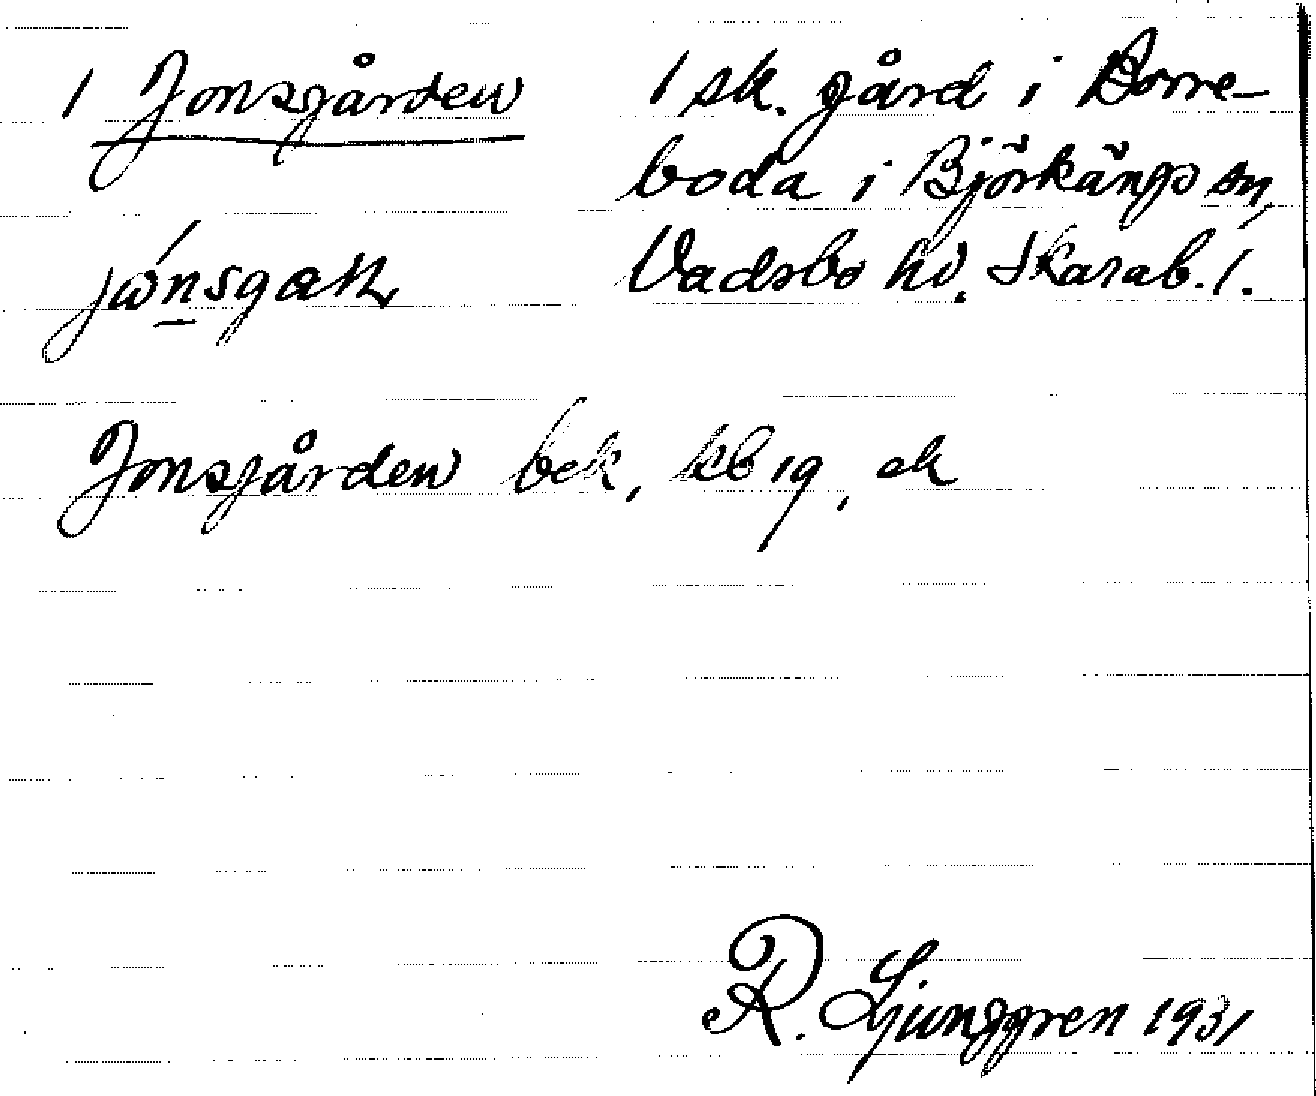 1 Jonsgården
jónsgaʈɳ
1 sk. gård i Borre-
boda i Björkängs sn,
Vadsbo hd. Skarab. l.
Jonsgården bek, kb 19, ek
R. Ljunggren 1931